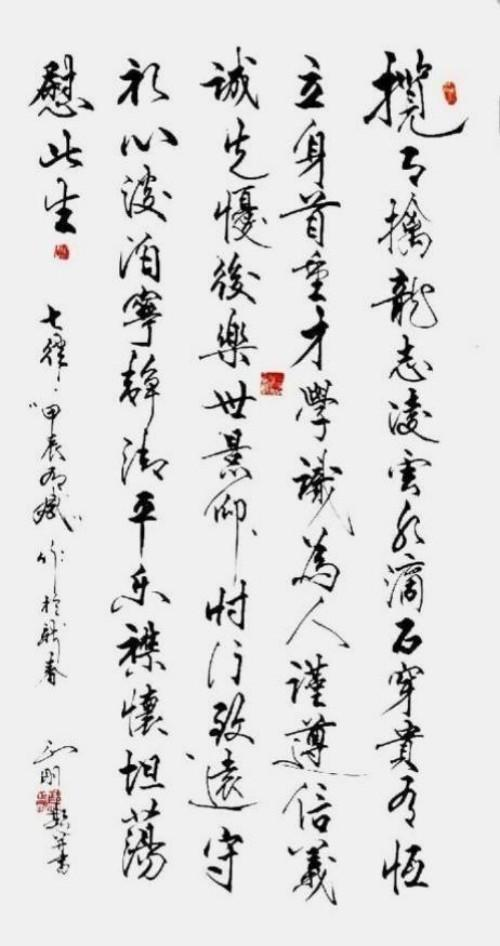 攬月擒龍志凌雲水滴石穿貴有恆
立身首重才學識為人謹遵信義
誠先懮後樂世景仰時行致遠守
初心淡泊寧靜御平乐襟懷坦蕩
慰此生
七律·"甲辰有感"作於春
剛并書